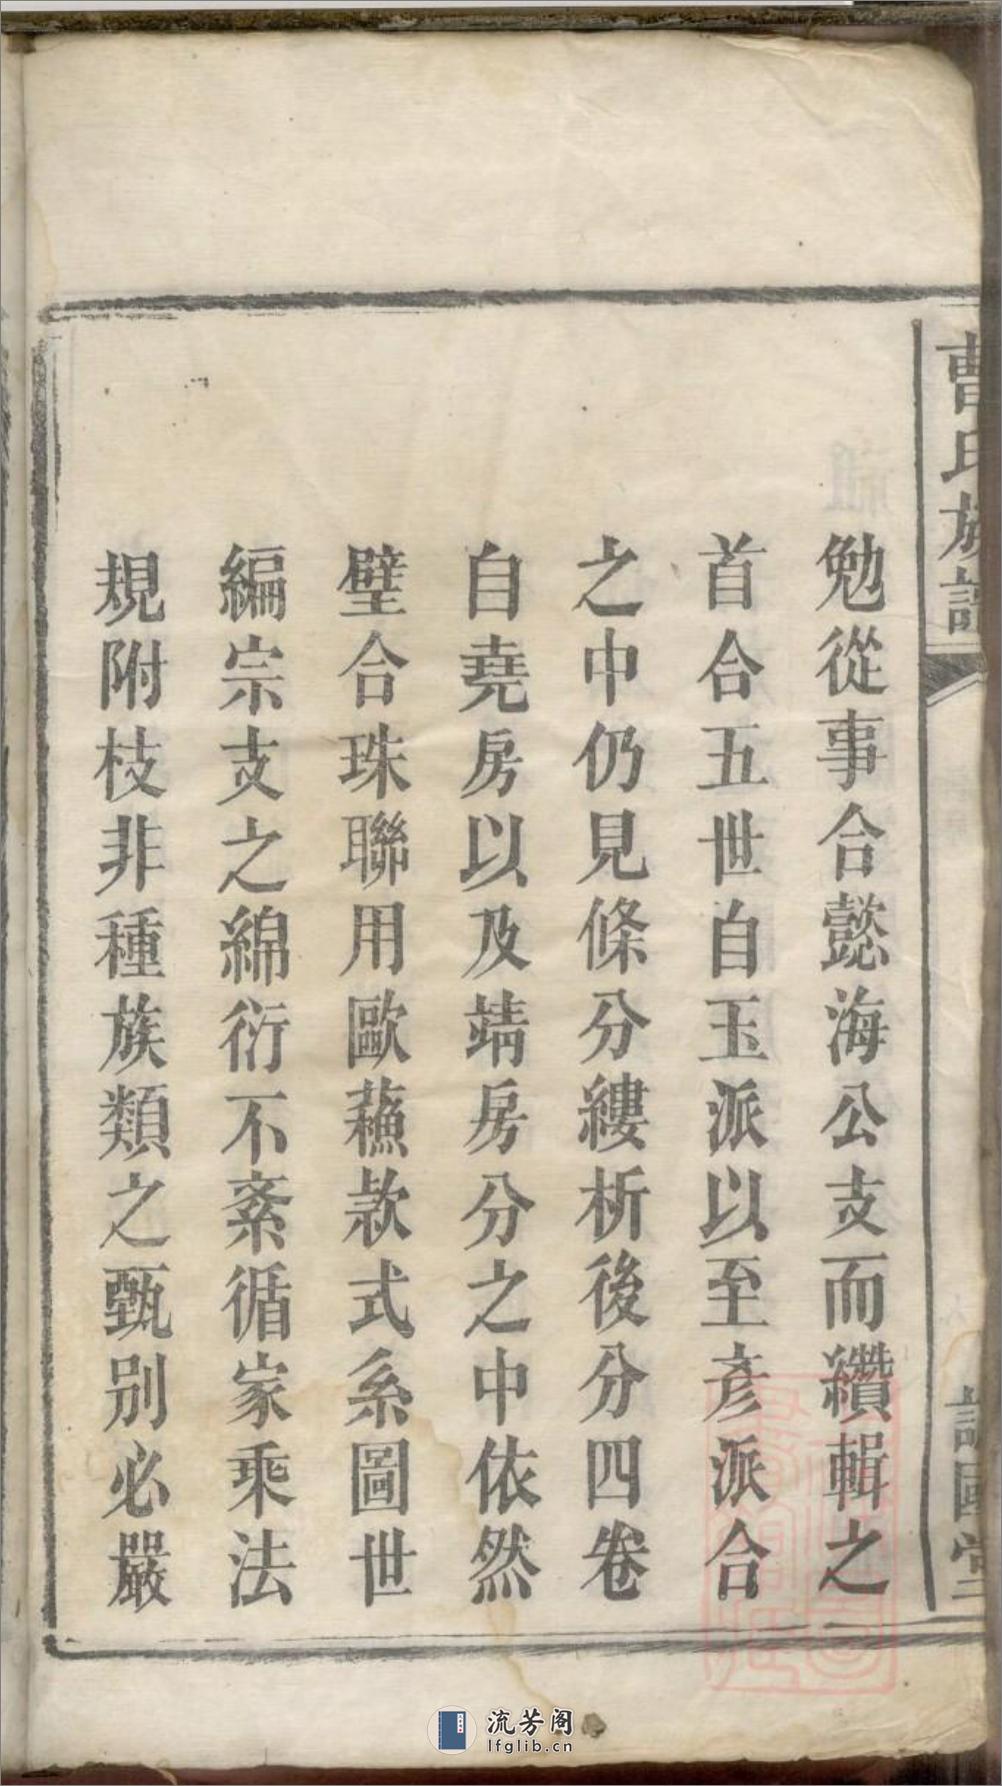 曹氏族譜
勉從事合懿海公支而纘輯之
首合五世自玉派以至彦派合
之中仍見條分縷析後分四卷
自堯房以及靖房分之中依然
璧合珠聯用歐蘓款式系圖世
編宗支之綿衍不紊循家乘法
規附枝非種族類之甄别必嚴
流芳阁
lfglib.cn